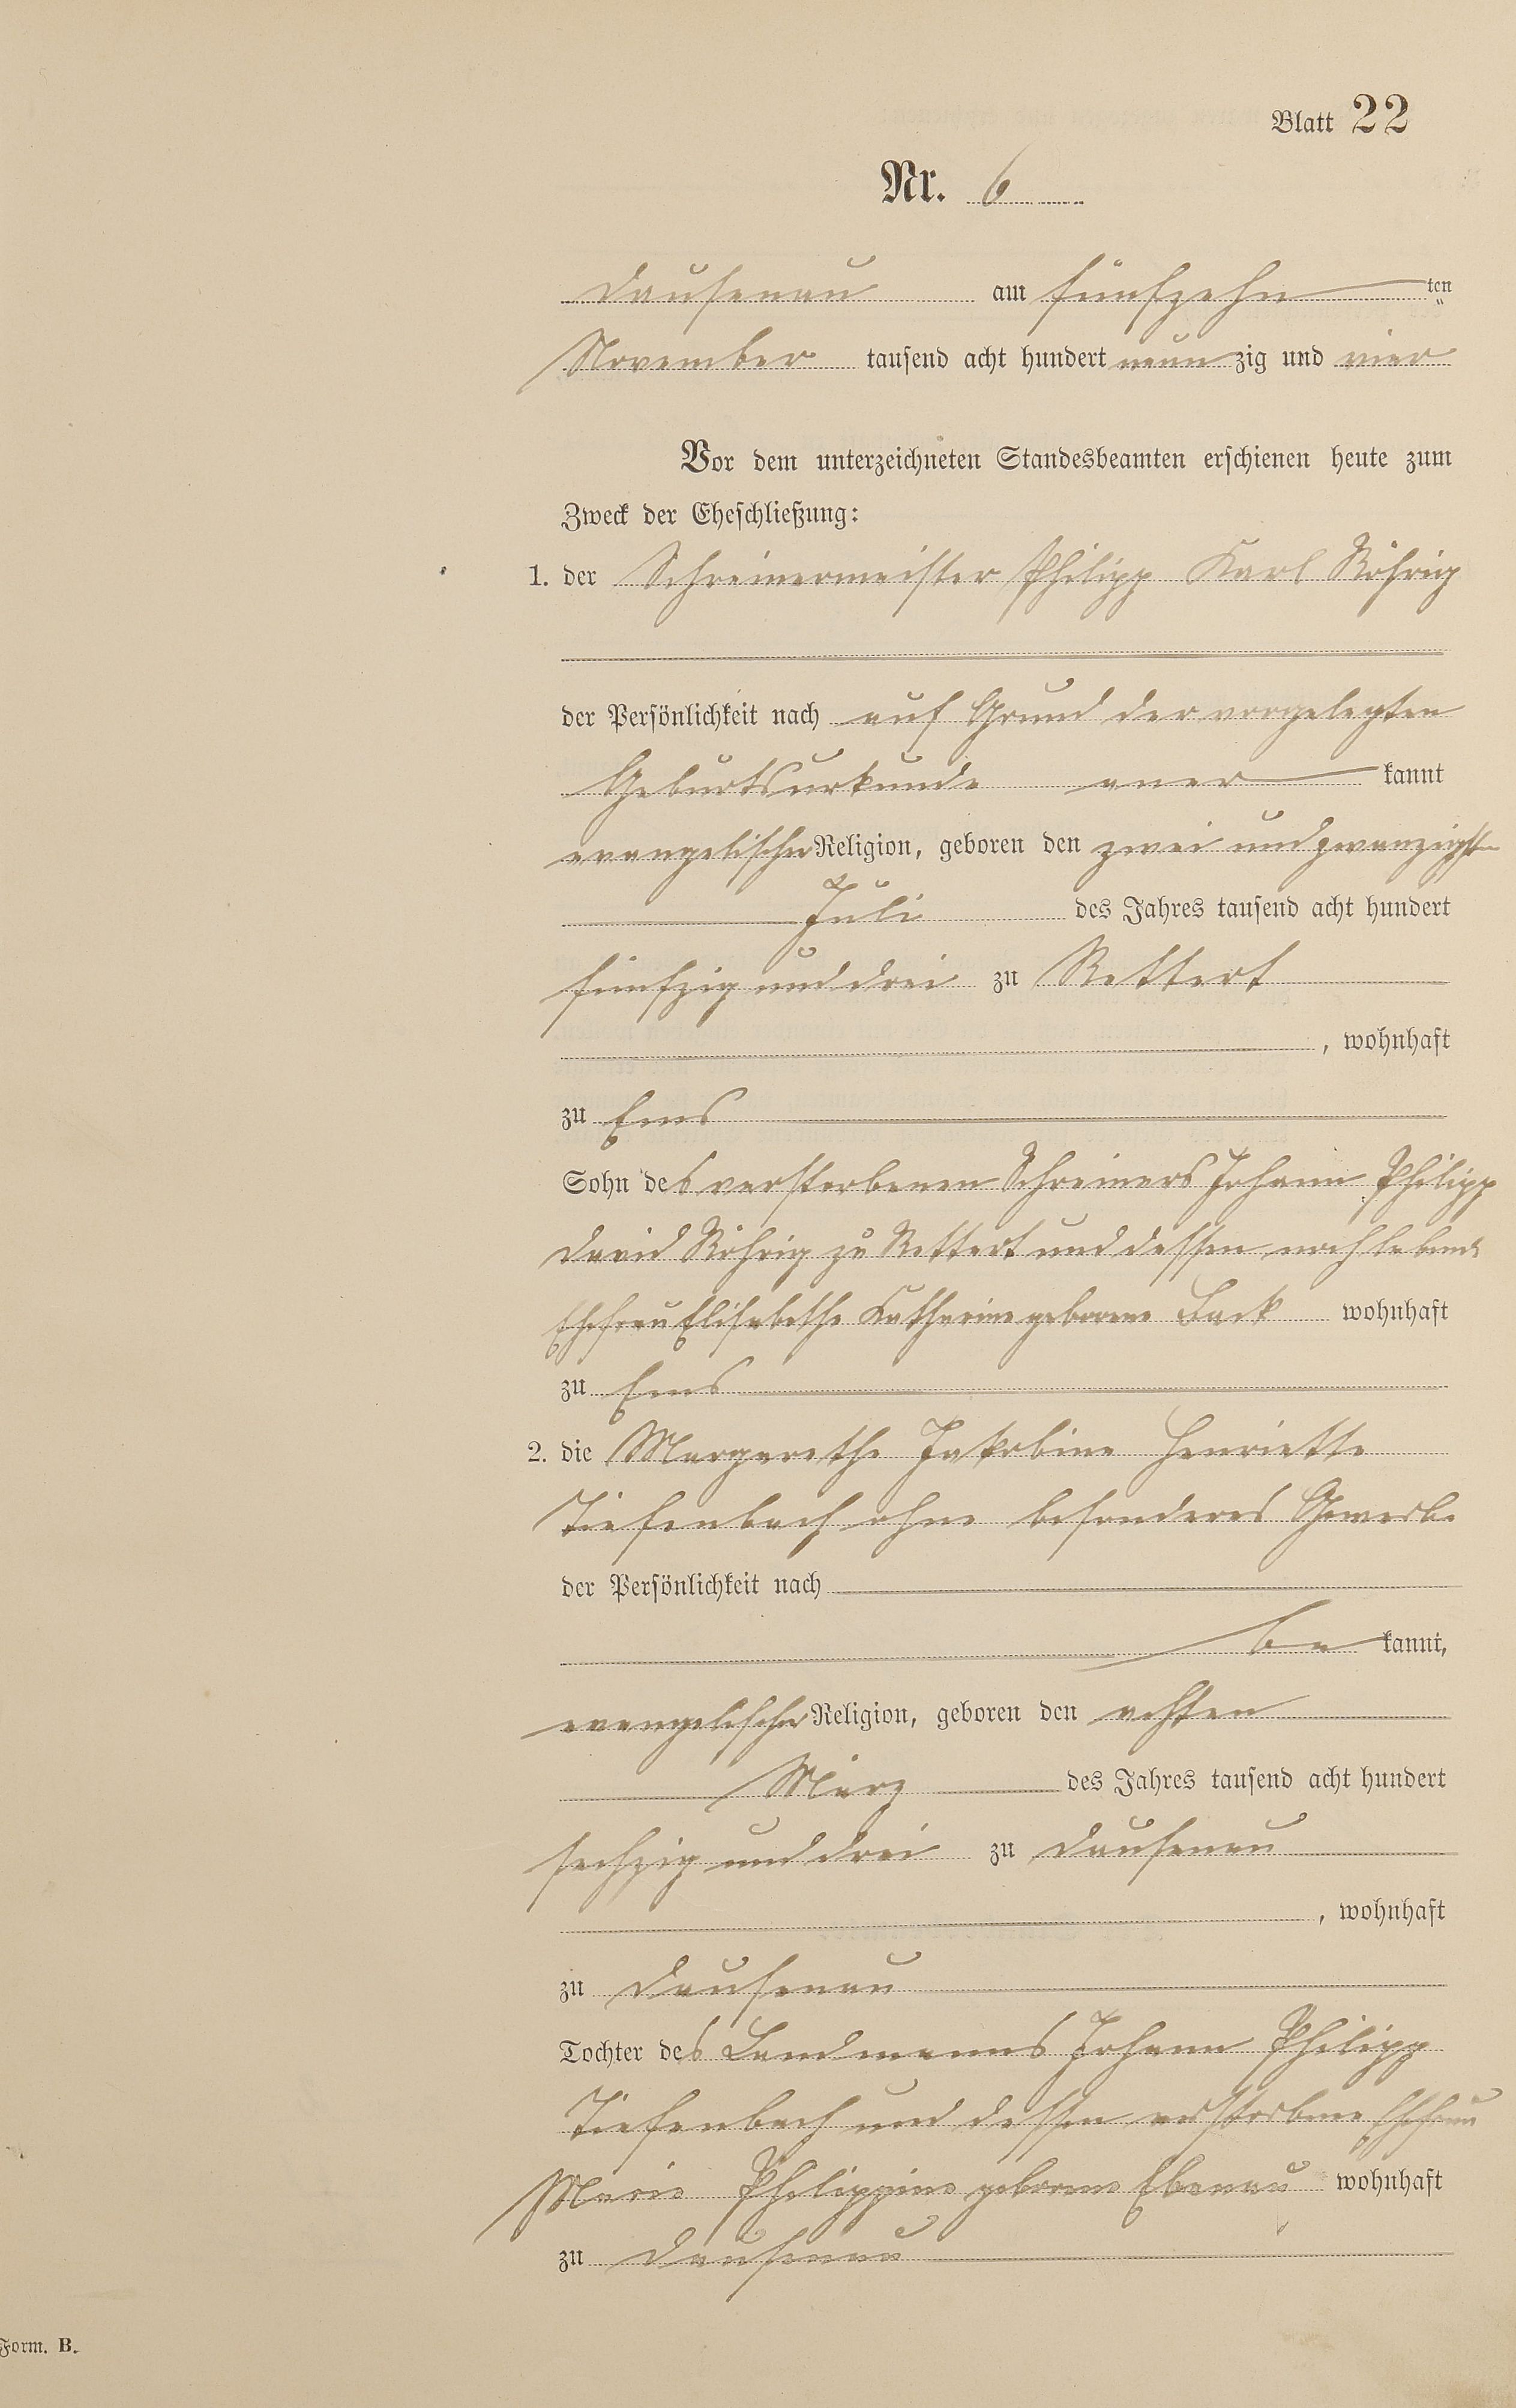 Blatt 22
Nr. 6
Dausenau am fünfzehn ten
November tausend acht hundert neun zig und vier
Vor dem unterzeichneten Standesbeamten erschienen heute zum
Zweck der Eheschließung:
1. der Schreinermeister Philipp Karl Röhrig
der Persönlichkeit nach auf Grund der vorgelegten
Geburtsurkunde aner kannt
evangelischer Religion, geboren den zwei und zwanzigsten
Juli des Jahres tausend acht hundert
fünfzig und drei zu Rettert
, wohnhaft
zu Ems
Sohn des verstorbenen Schreiners Johann Philipp
David Röhrig zu Rettert und dessen noch lebende
Ehefrau Elisabethe Katharine geborene Back wohnhaft
zu Ems
2. die Margarethe Jakobine Henriette
Tiefenbach ohne besonderes Gewerbe
der Persönlichkeit nach
be kannt,
evangelischer Religion, geboren den achten
März des Jahres tausend acht hundert
sechzig und drei zu Dausenau
, wohnhaft
zu Dausenau
Tochter des Landmanns Johann Philipp
Tiefenbach und dessen verstorbene Ehefrau
Marie Philippine geborene Ebenau wohnhaft
zu Dausenau
Form. B.